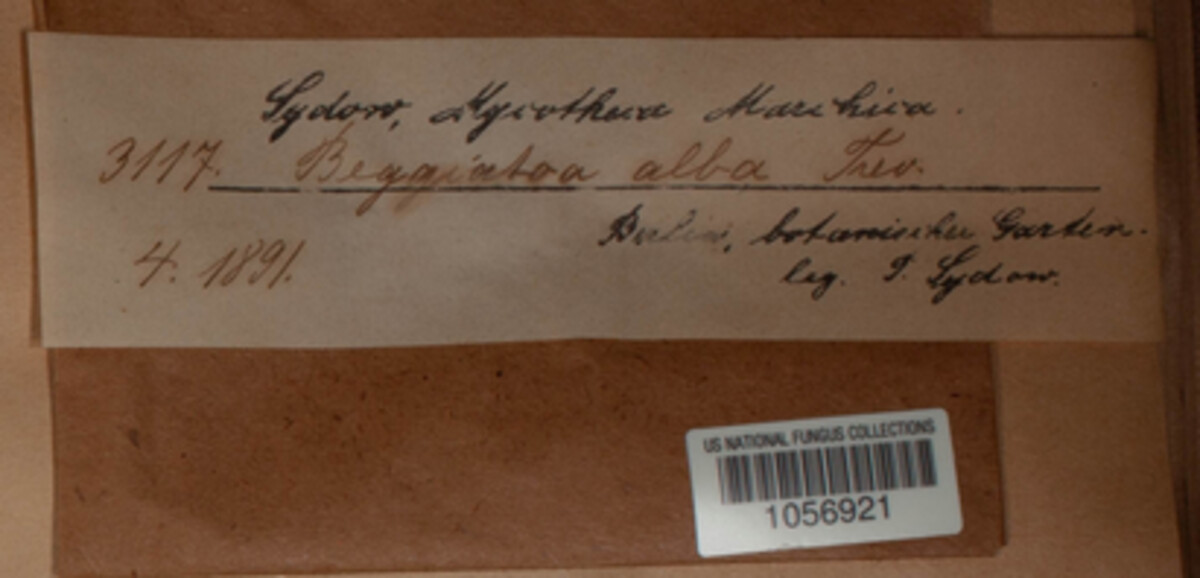 Sydow, Mycotheca Marchica.
3117. Beggiatoa alba Trev.
Berlin, botanischer Garten.
4. 1891.
leg. P. Sydow.
US NATIONAL FUNGUS COLLECTIONS
1056921